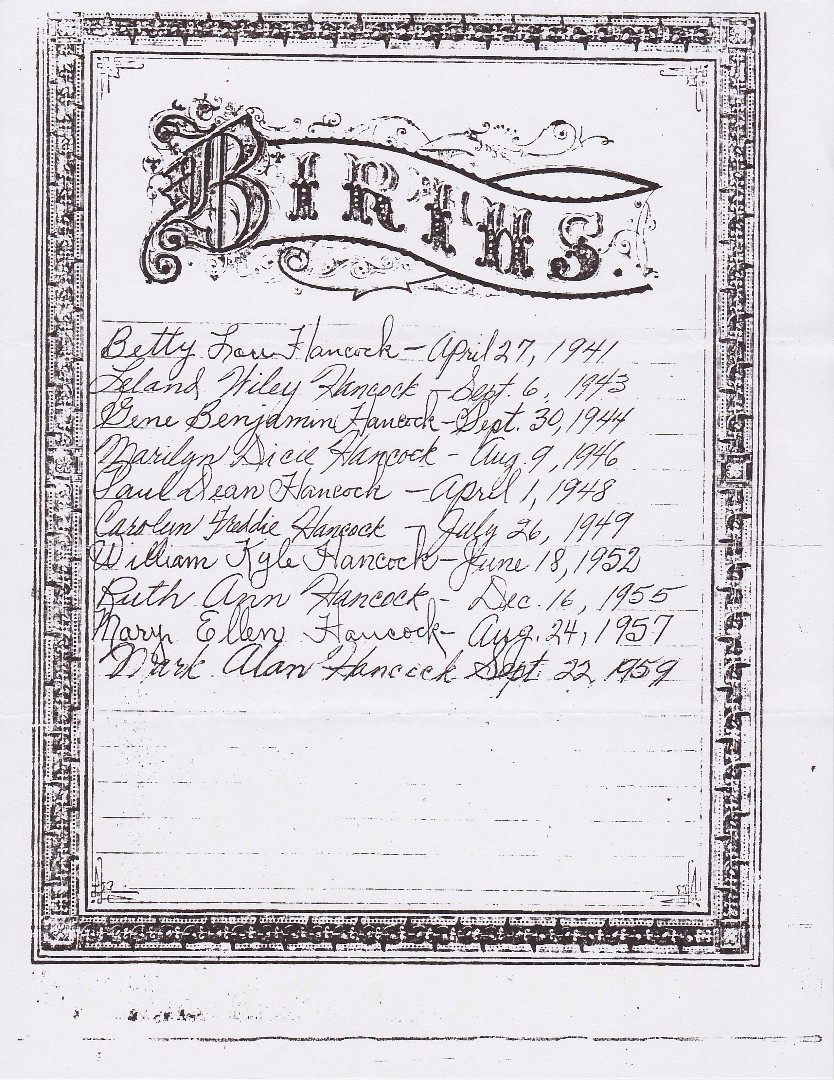 BIRTHS.
Betty Lou Hancock – April 27, 1941
Leland Wiley Hancock – Sept. 6, 1943
Gene Benjamin Hancock – Sept. 30, 1944
Marilyn Dicie Hancock – Aug. 9, 1946
Paul Dean Hancock – April 1, 1948
Carolyn Freddie Hancock – July 26, 1949
William Kyle Hancock – June 18, 1952
Ruth Ann Hancock – Dec. 16, 1955
Mary Ellen Hancock – Aug. 24, 1957
Mark Alan Hancock Sept. 22, 1959